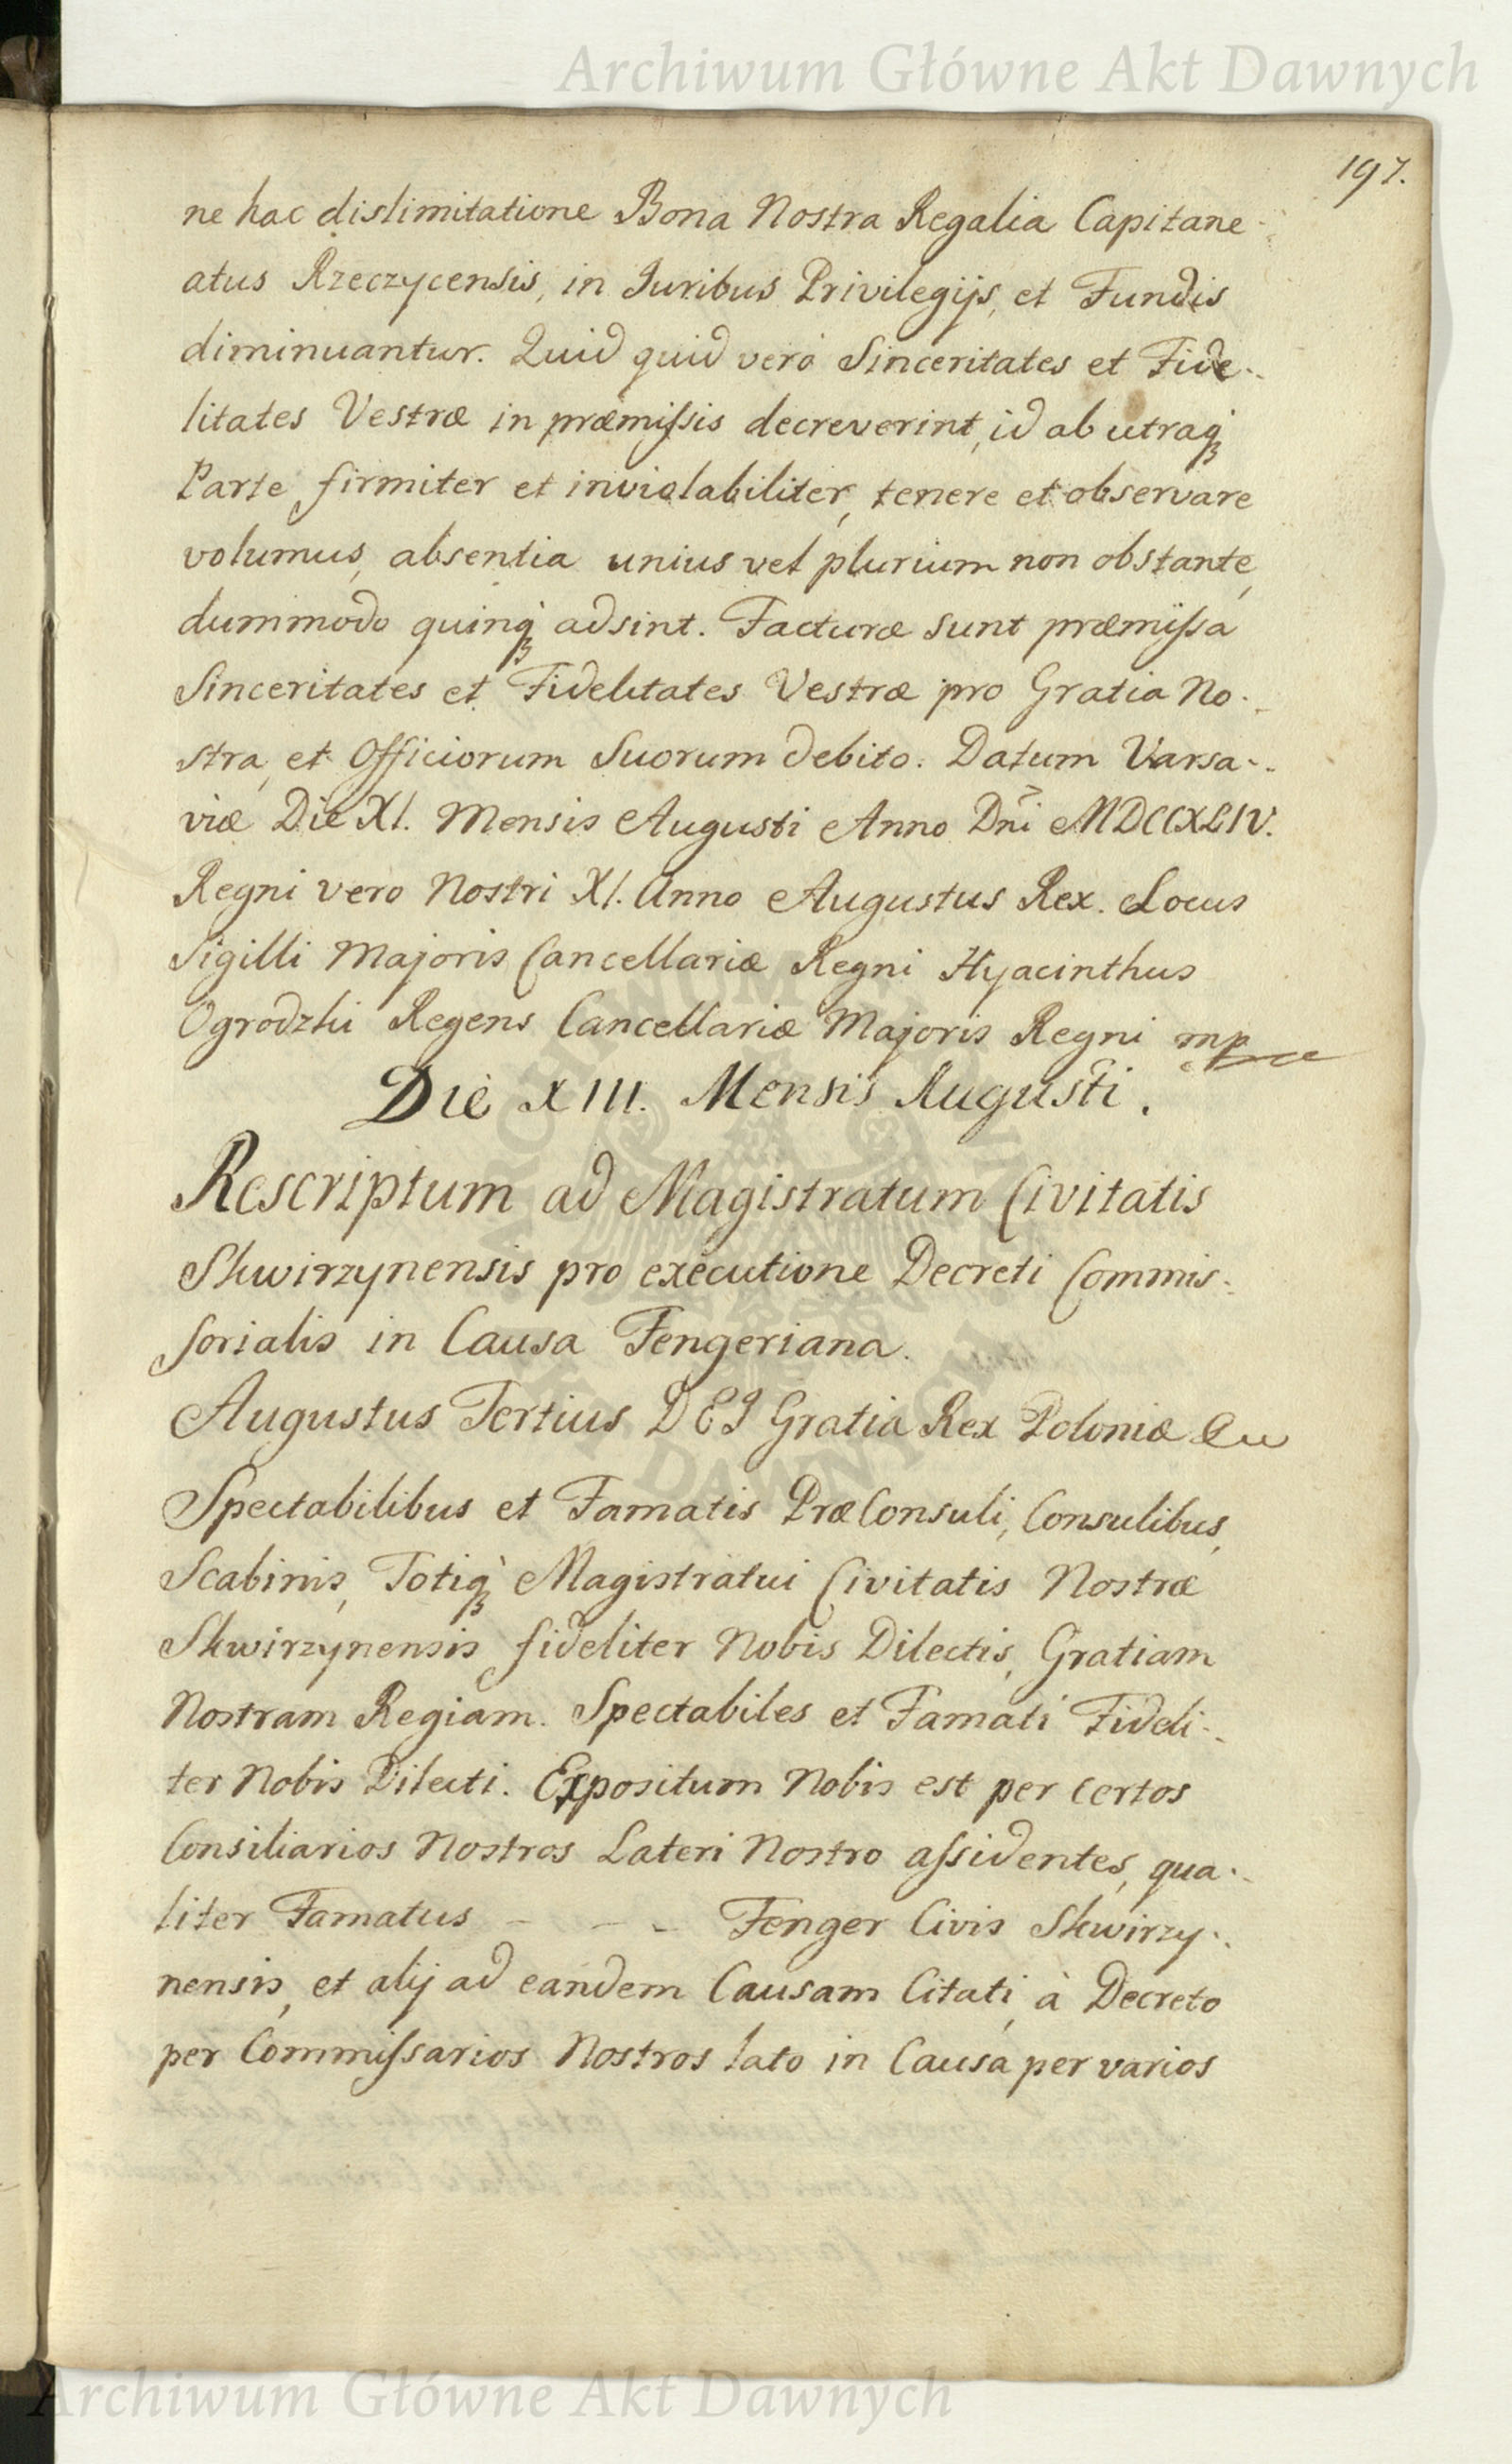 Archiwum Główne Akt Dawnych
197.
ne hac dislimitatione Bona Nostra Regalia Capitane-
atus Rzeczycensis, in Iuribus Privilegijs, et Fundis
diminuantur. Quid quid verò Sinceritates et Fide-
litates Vestræ in præmiſsis decreverint, id ab utraq́ꝫ
Parte firmiter et inviolabiliter, tenere et observare
volumus, absentia unius vel plurium non obstante,
dummodo quinq́ꝫ adsint. Facturæ sunt præmiſsa
Sinceritates et Fidelitates Vestræ pro Gratia No-
stra, et Officiorum Suorum debito. Datum Varsa-
viæ Die XI. Mensis Augusti Anno Dn̄i MDCCXLIV.
Regni vero Nostri XI. Anno Augustus Rex. Locus
Sigilli Majoris Cancellariæ Regni Hyacinthus
Ogrodzki Regens Cancellariæ Majoris Regni mp
Die XIII. Mensis Augusti.
Rescriptum ad Magistratum Civitatis
Skwirzynensis pro executione Decreti Commis-
sorialis in Causa Fengeriana.
Augustus Tertius DEI Gratia Rex Poloniæ &c
Spectabilibus et Famatis PræConsuli, Consulibus,
Scabinis, Totiq́ꝫ Magistratui Civitatis Nostræ
Skwirzynensis fideliter Nobis Dilectis, Gratiam
Nostram Regiam. Spectabiles et Famati Fideli-
ter Nobis Dilecti. Expositum Nobis est per certos
Consiliarios Nostros Lateri Nostro aſsidentes, qua-
liter Famatus - - - Fenger Civis Skwirzy-
nensis, et alij ad eandem Causam Citati, à Decreto
per Commiſsarios Nostros lato in Causa per varios
Archiwum Główne Akt Dawnych